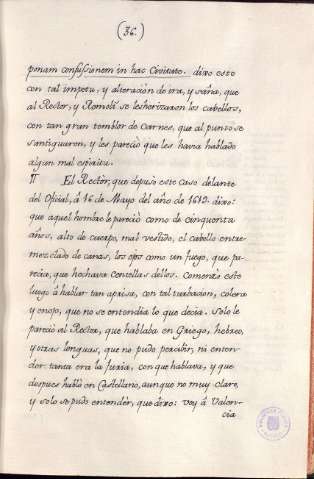 (36.)
pmam confussionem in hac Civitate. dixo esto
con tal impetu, y alteración de ira, y saña, que
al Rector, y Romolí se leshorizaron los cabellos,
con tan gran temblor de carnes, que al punto se
santiguaron, y les pareció que les havia hablado
algun mal espiritu.
¶ El Rector, que depuso este caso delante
del Oficial, á 16 de Mayo del año de 1612. dixo:
que aquel hombre le pareció como de cinquenta
años, alto de cuerpo, mal vestido, el cabello entre
mezclado de canas, los ojos como un fuego, que pa-
recia, que hechava centellas dellos. Comenzó este
luego á hablar tan aprisa, con tal turbacion, colera
y enojo, que no se entendia lo que decia. Solo le
pareció al Rector, que hablaba en Griego, hebreo,
y otras lenguas, que no pudo percibir, ni enten-
der: tanta era la furia, con que hablava, y que
despues habló en Castellano, aunque no muy claro,
y solo se pudo entender, que dixo: voy á Valen-
cia